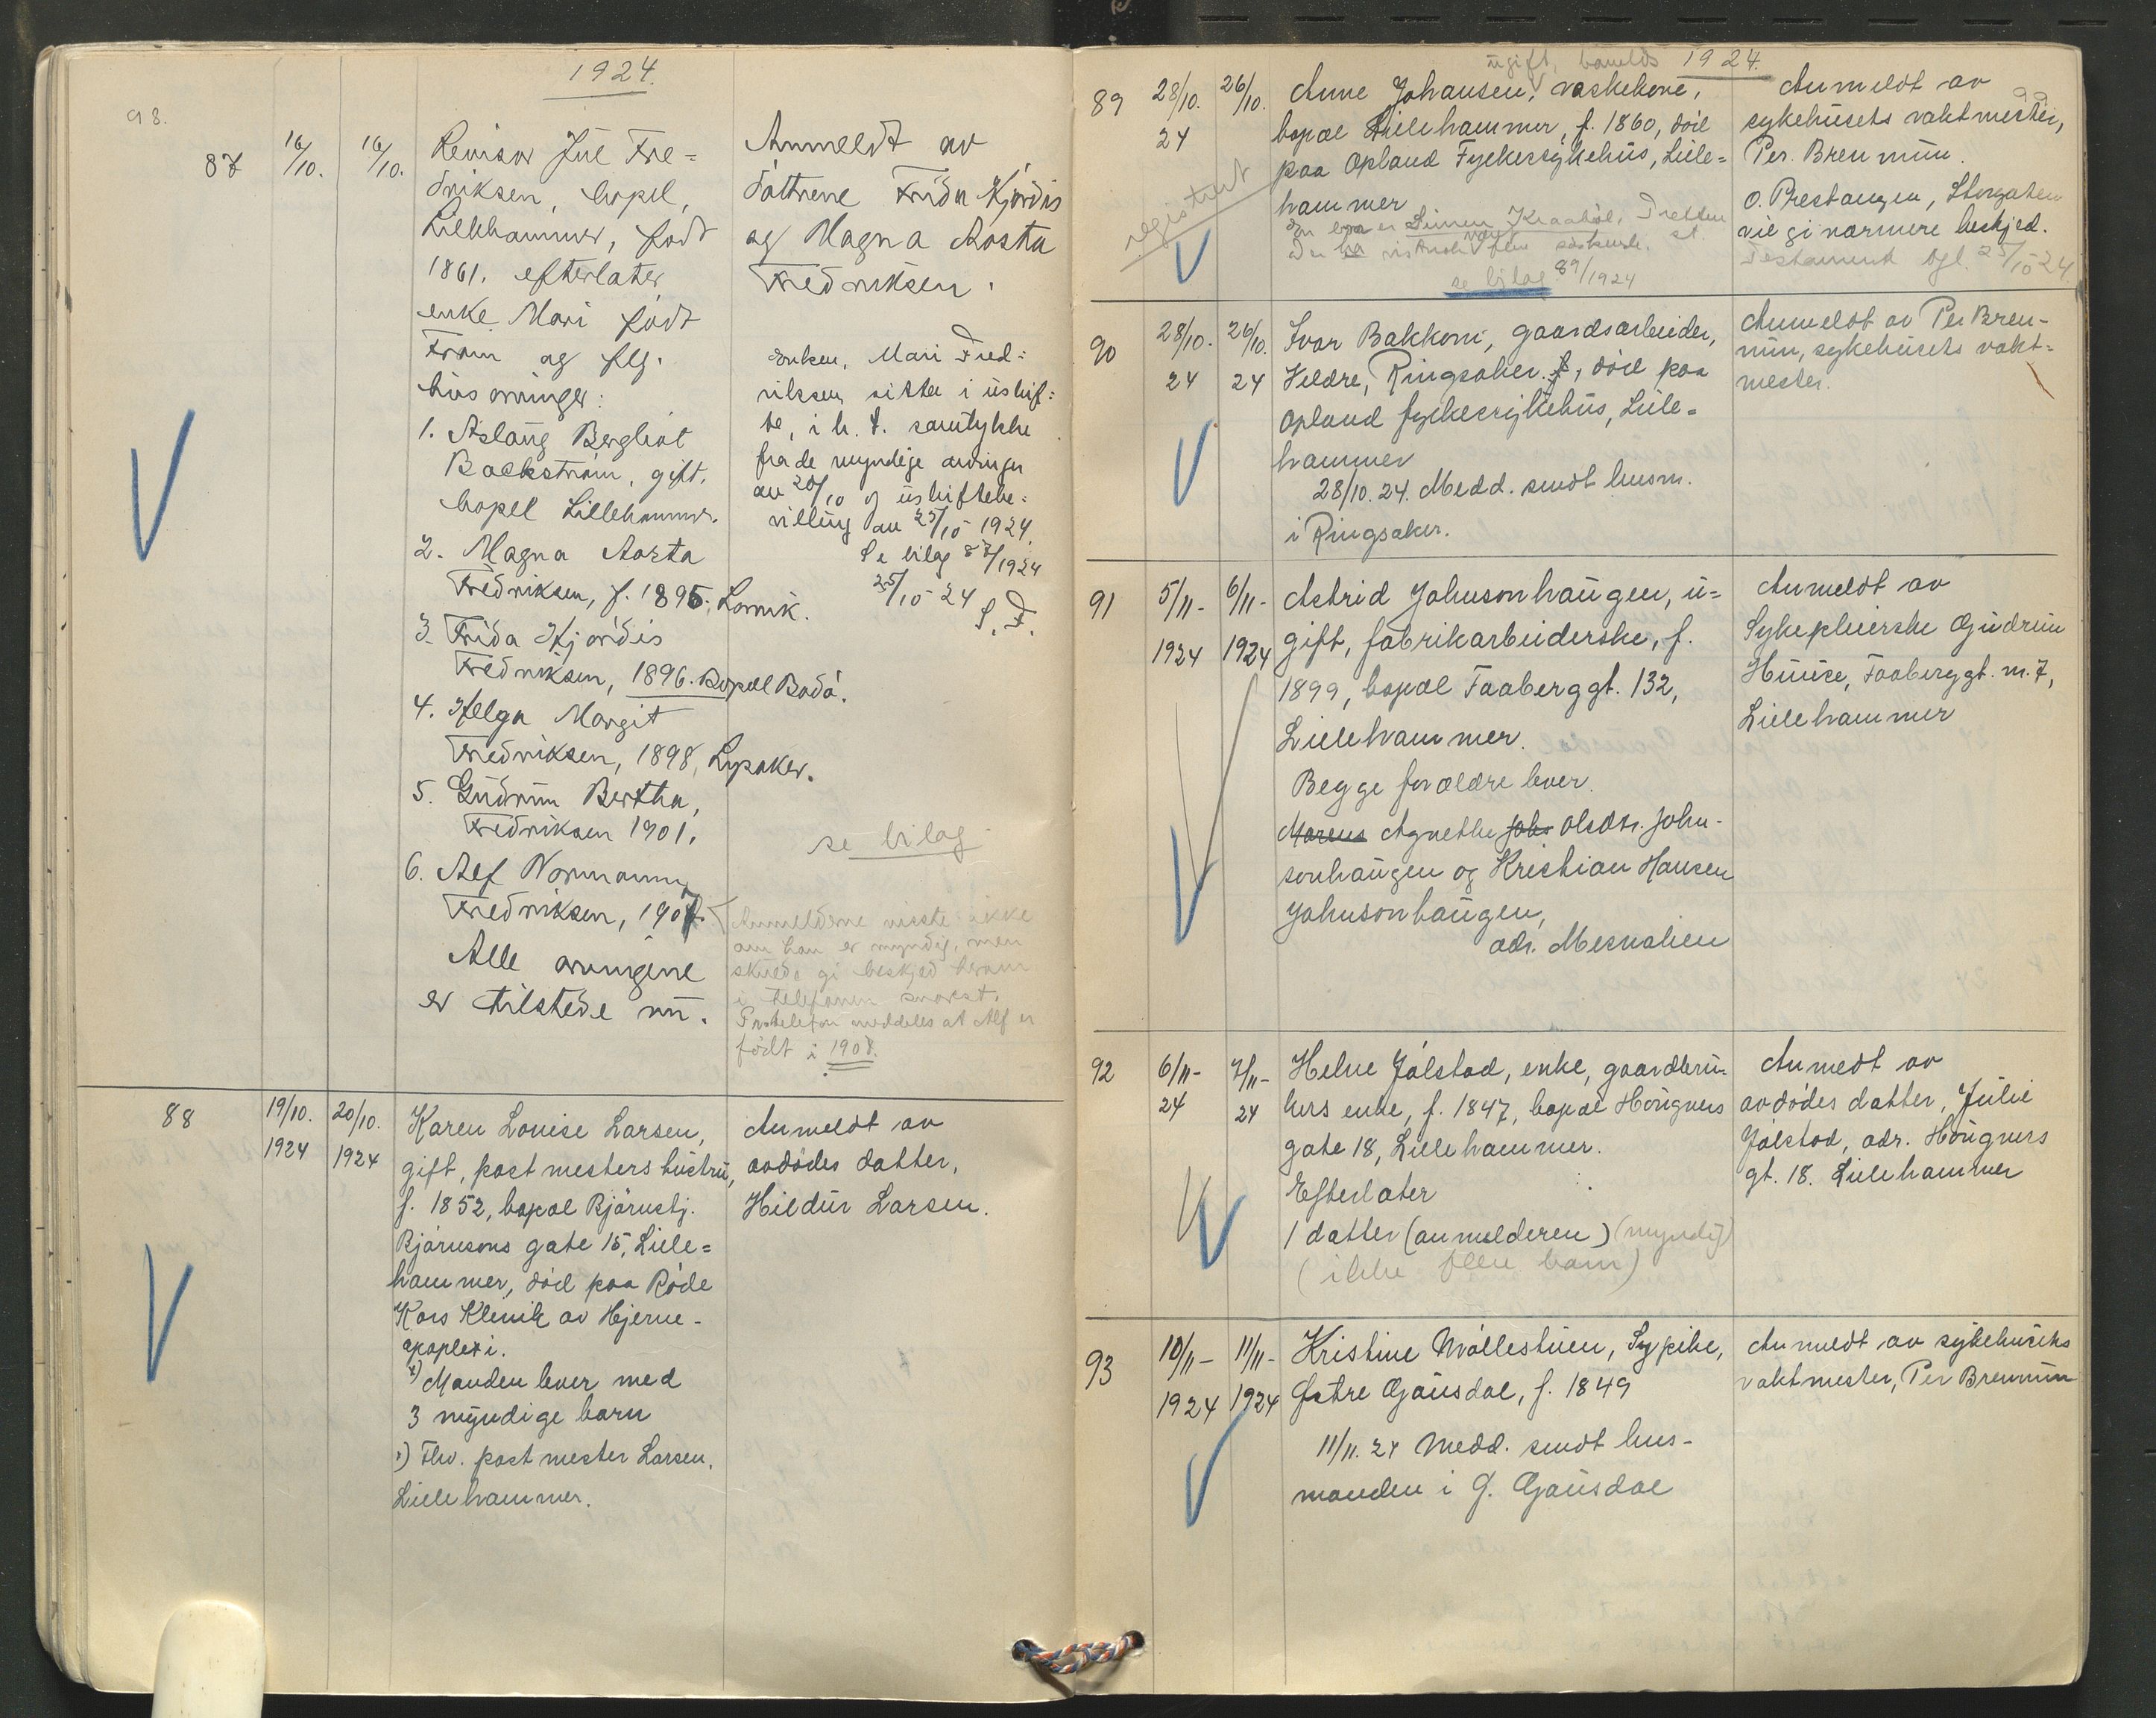 98.
1924.
87
16/10.
16/10.
Revisor Jul Fre=
driksen, bopel,
Lillehammer, født
1861. efterlater
enke Mari født
Fram og flg.
livsarvinger:
1. Aslaug Bergliot
Backstrøm, gift,
bopel Lillehammer.
2. Magna Aasta
Fredriksen, f. 1895,
3. Frida Hjørdis
Fredriksen, 1896. Bopæl Bodø.
4. Helga Margit
Fredriksen, 1898, Lysaker.
5. Gudrun Bertha,
Fredriksen 1901.
6. Alf Normann
Fredriksen, 1908.
Alle arvingene
er tilstede nu.
Anmeldt av
døttrene Frida Hjørdis
og Magna Aasta
Fredriksen.
Enken, Mari Fred=
riksen sitter i uskif=
te, i h. t. samtykke
fra de myndige arvinger
av 20/10 og uskiftebe=
villing av 25/10 1924.
Se bilag 87/1924
25/10 24
se bilag
Anmelderne visste ikke
om han er myndig, men
skulde gi beskjed herom
i telefonen snarest.
Pr. telefon meddeles at Alf er
født i 1908.
88
19/10.
1924
20/10.
1924
Karen Louise Larsen,
gift, postmesters hustru,
f. 1852, bopæl Bjørnstj.
Bjørnsons gate 15, Lille=
hammer, død paa Røde
Kors Klinik av Hjerne-
apoplexi.
x) Manden lever med
3 myndige barn
x) Fhv. postmester Larsen,
Lillehammer.
Anmeldt av
avdødes datter,
Hildur Larsen.
99
1924.
89
28/10.
24
26/10.
registrert
ugift, barnløs
Anne Johansen, vaskekone,
bopæl Lillehammer, f. 1860, død
paa Opland Fylkessykehus, Lille=
hammer
se bilag 89/1924
Anmeldt av
sykehusets vaktmester,
Per Brenmun.
O. Prestangen, Storgaten
vil gi nærmere beskjed.
Testament
90
28/10.
24
26/10.
24
Ivar Bakkom, gaardsarbeider,
Veldre, Ringsaker, død paa
Opland fylkessykehus, Lille=
hammer
28/10. 24. Medd. sendt lensm.
i Ringsaker.
Anmeldt av Per Bren-
mun, sykehusets vakt=
mester.
91
5/11-
1924
6/11-
1924
Astrid Johnsonhaugen, u=
gift, fabrikarbeiderske, f.
1899, bopæl Faaberggt. 132,
Lillehammer.
Begge forældre lever.
Marens Agnethe Joh. Olsdtr. John-
sonhaugen og Kristian Hansen
Johnsonhaugen,
adr. Mesnalien
Anmeldt av
Sykepleierske Gudrun
Faaberggt. nr. 7,
Lillehammer
92
6/11-
24
7/11-
24
Helne Jålstad, enke, gaardbru-
kers enke, f. 1847, bopæl Hougners
gate 18, Lillehammer.
Efterlater
1 datter (anmelderen) (myndig)
(ikke flere barn)
Anmedt av
avdødes datter, Julie
Jålstad, adr. Hougners
gt. 18. Lillehammer
93
10/11-
1924
11/11-
1924
Kristine Møllestuen, Sypike,
Østre Gausdal, f. 1849
11/11. 24 Medd. sendt lens-
manden i Ø. Gausdal
Anmeldt av sykehusets
vaktmester, Per Brenmun